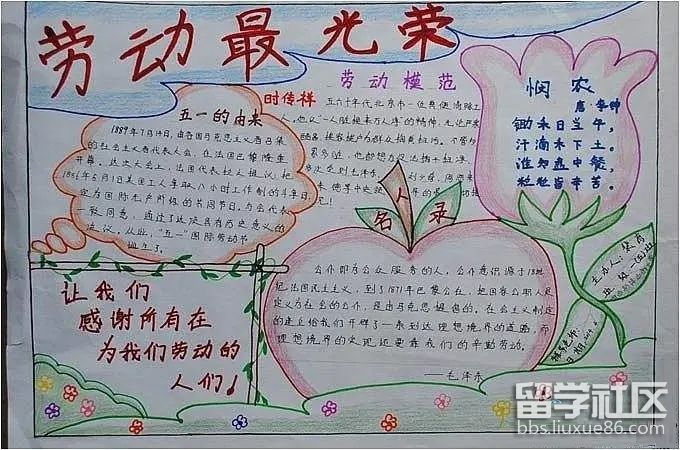 劳动最光荣
五一的由来
1889年7月14日,由各国马克思主义者召集
的社会主义者代表大会,在法国巴黎隆重
开幕。这次大会上,法国代表拉人提议:把
1886年5月1日美国工人争取八小时工作制的斗争日,
定为国际无产阶级的共同节日。与会代表
一致同意,通过了这项具有历史意义的
决议。从此,"五一"国际劳动节
诞生了。
劳动模范
时传祥
五六十年代北京市一位
人。他以"一人脏换来万人净"的精神,无论严寒
悯农
唐·李绅
锄禾日当午,
汗滴禾下土。
谁知盘中餐,
粒粒皆辛苦。
名人录
公仆即为公众服务的人,公仆意识源于18世
纪法国民主主义,到了1871年巴黎公社,把国家公职人员
定义为社会的公仆,是由马克思提出的,在社会主义制定
的建立给我们开辟了一条到达理想境界的道路,而
理想境界的实现还要靠我们的辛勤劳动。
——毛泽东
让我们
感谢所有在
为我们劳动的
人们!
主办人:
班级:
日期:
留学社区
bbs.liuxue86.com